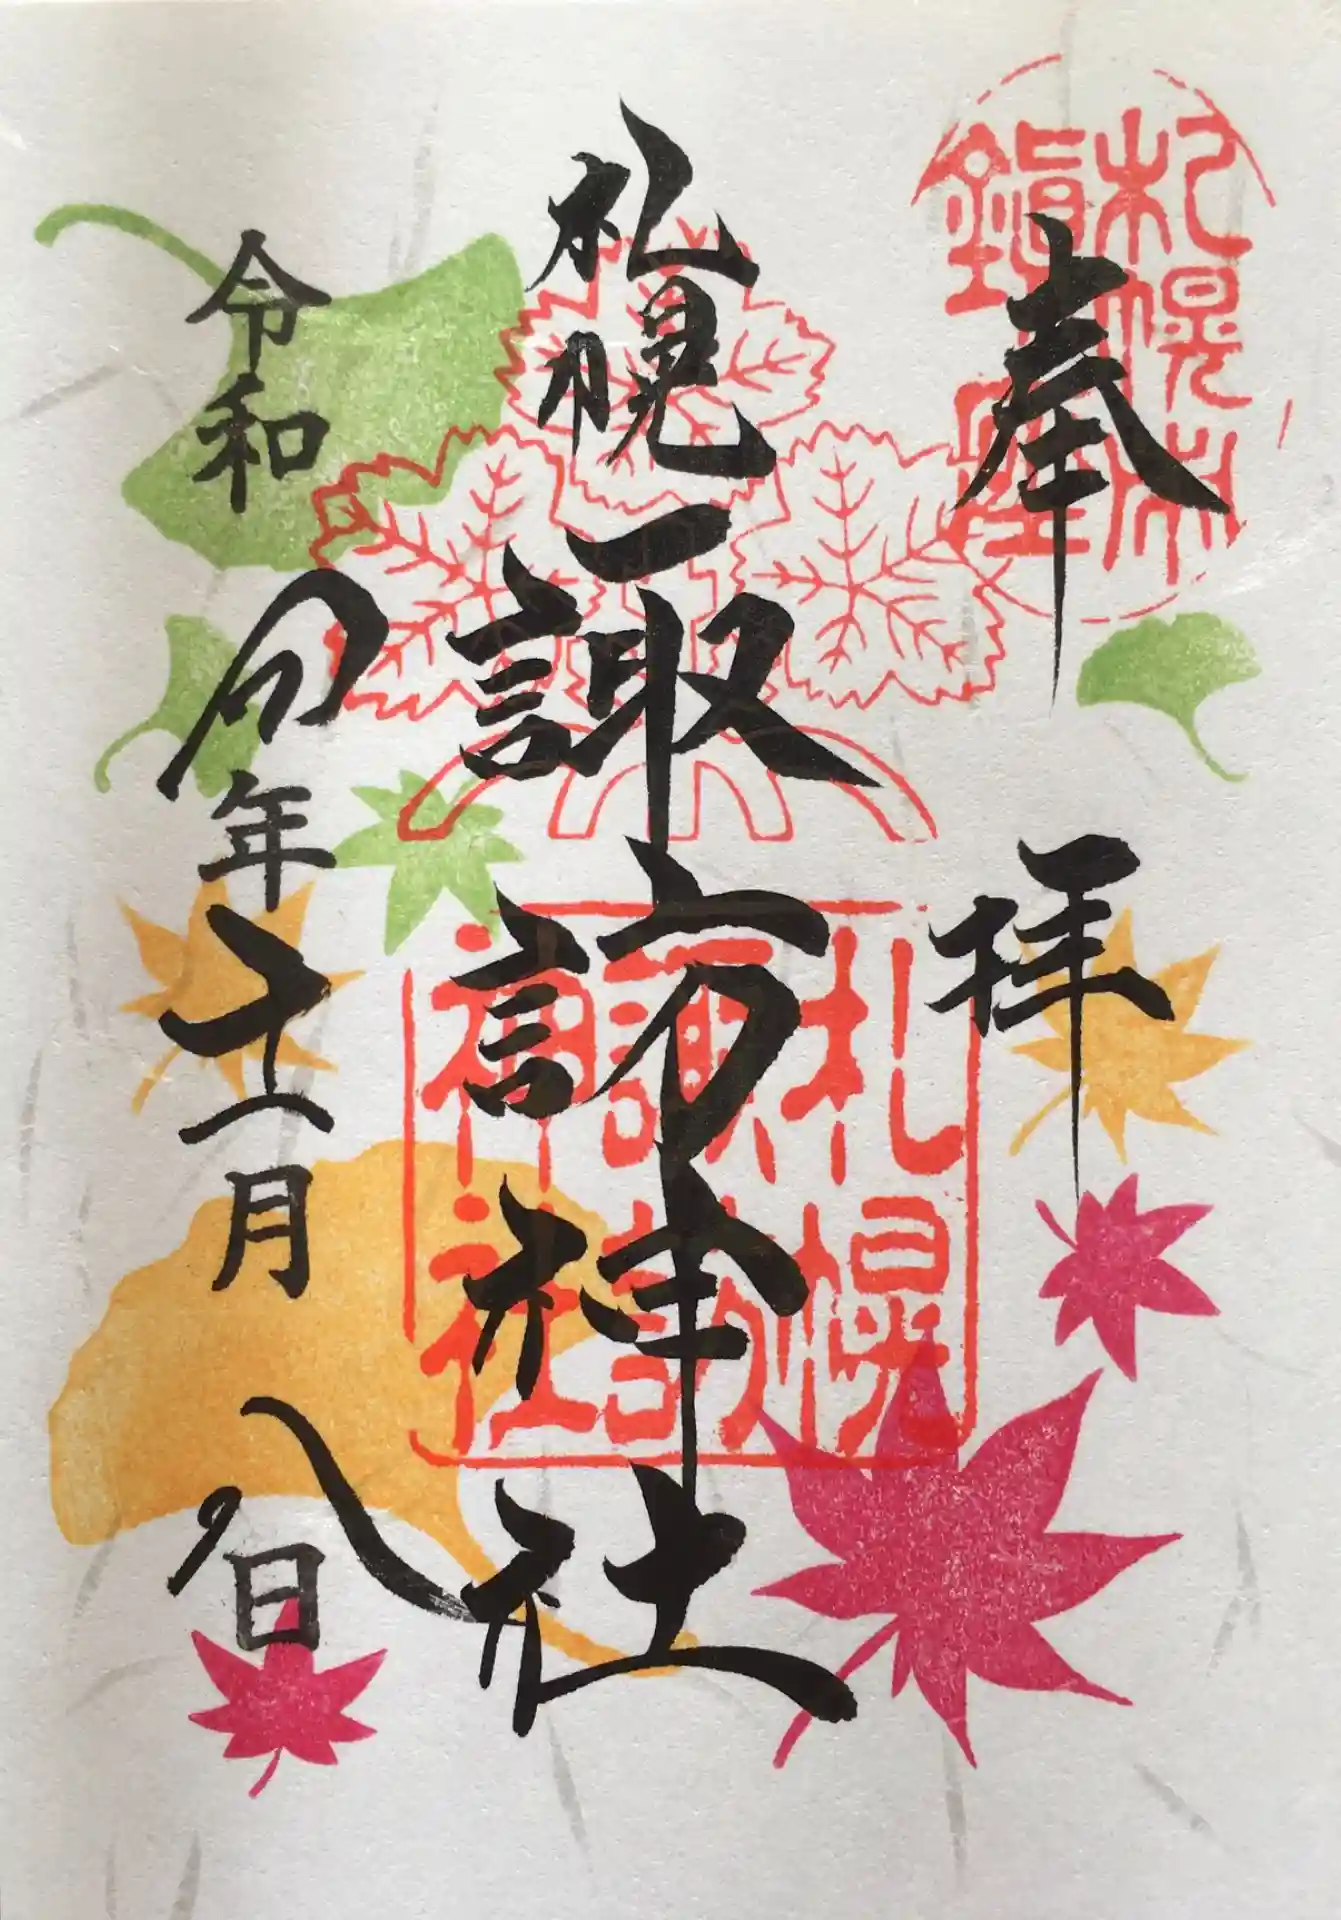 札幌市
鎮座
奉拝
札幌諏訪神社
札幌
諏訪
神社
令和四年十一月八日